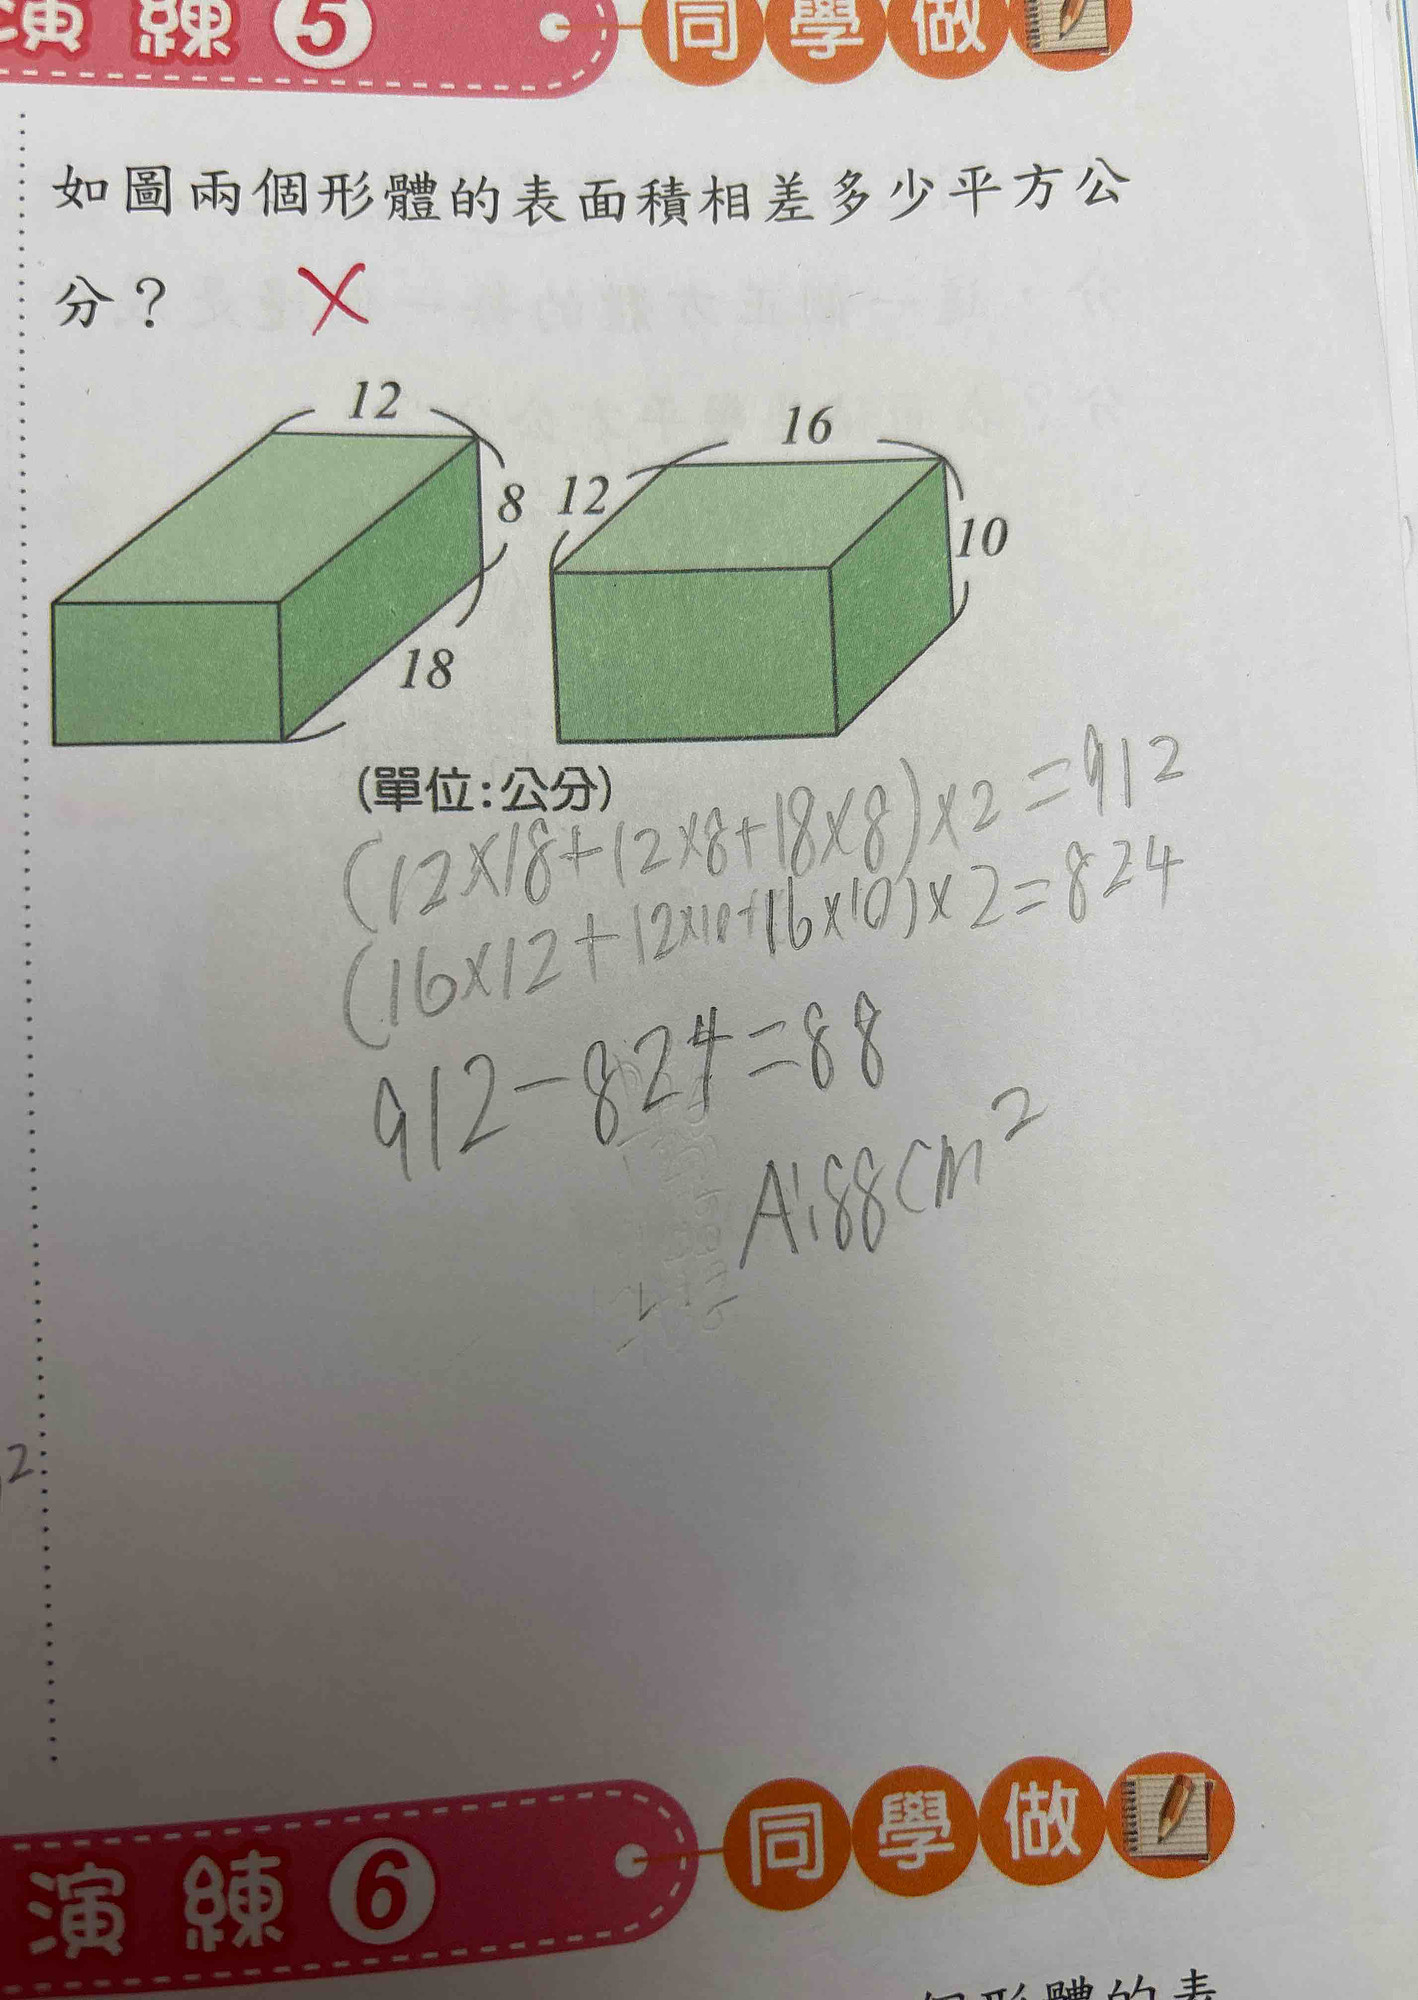 演練5 同學做
如圖兩個形體的表面積相差多少平方公
分？ X
12
8
18
16
12
10
(單位:公分)
(12×18+12×8+18×8)×2=912
(16×12+12×10+16×10)×2=824
912-824=88
A:88cm²
2
演練6 同學做
個形體的表